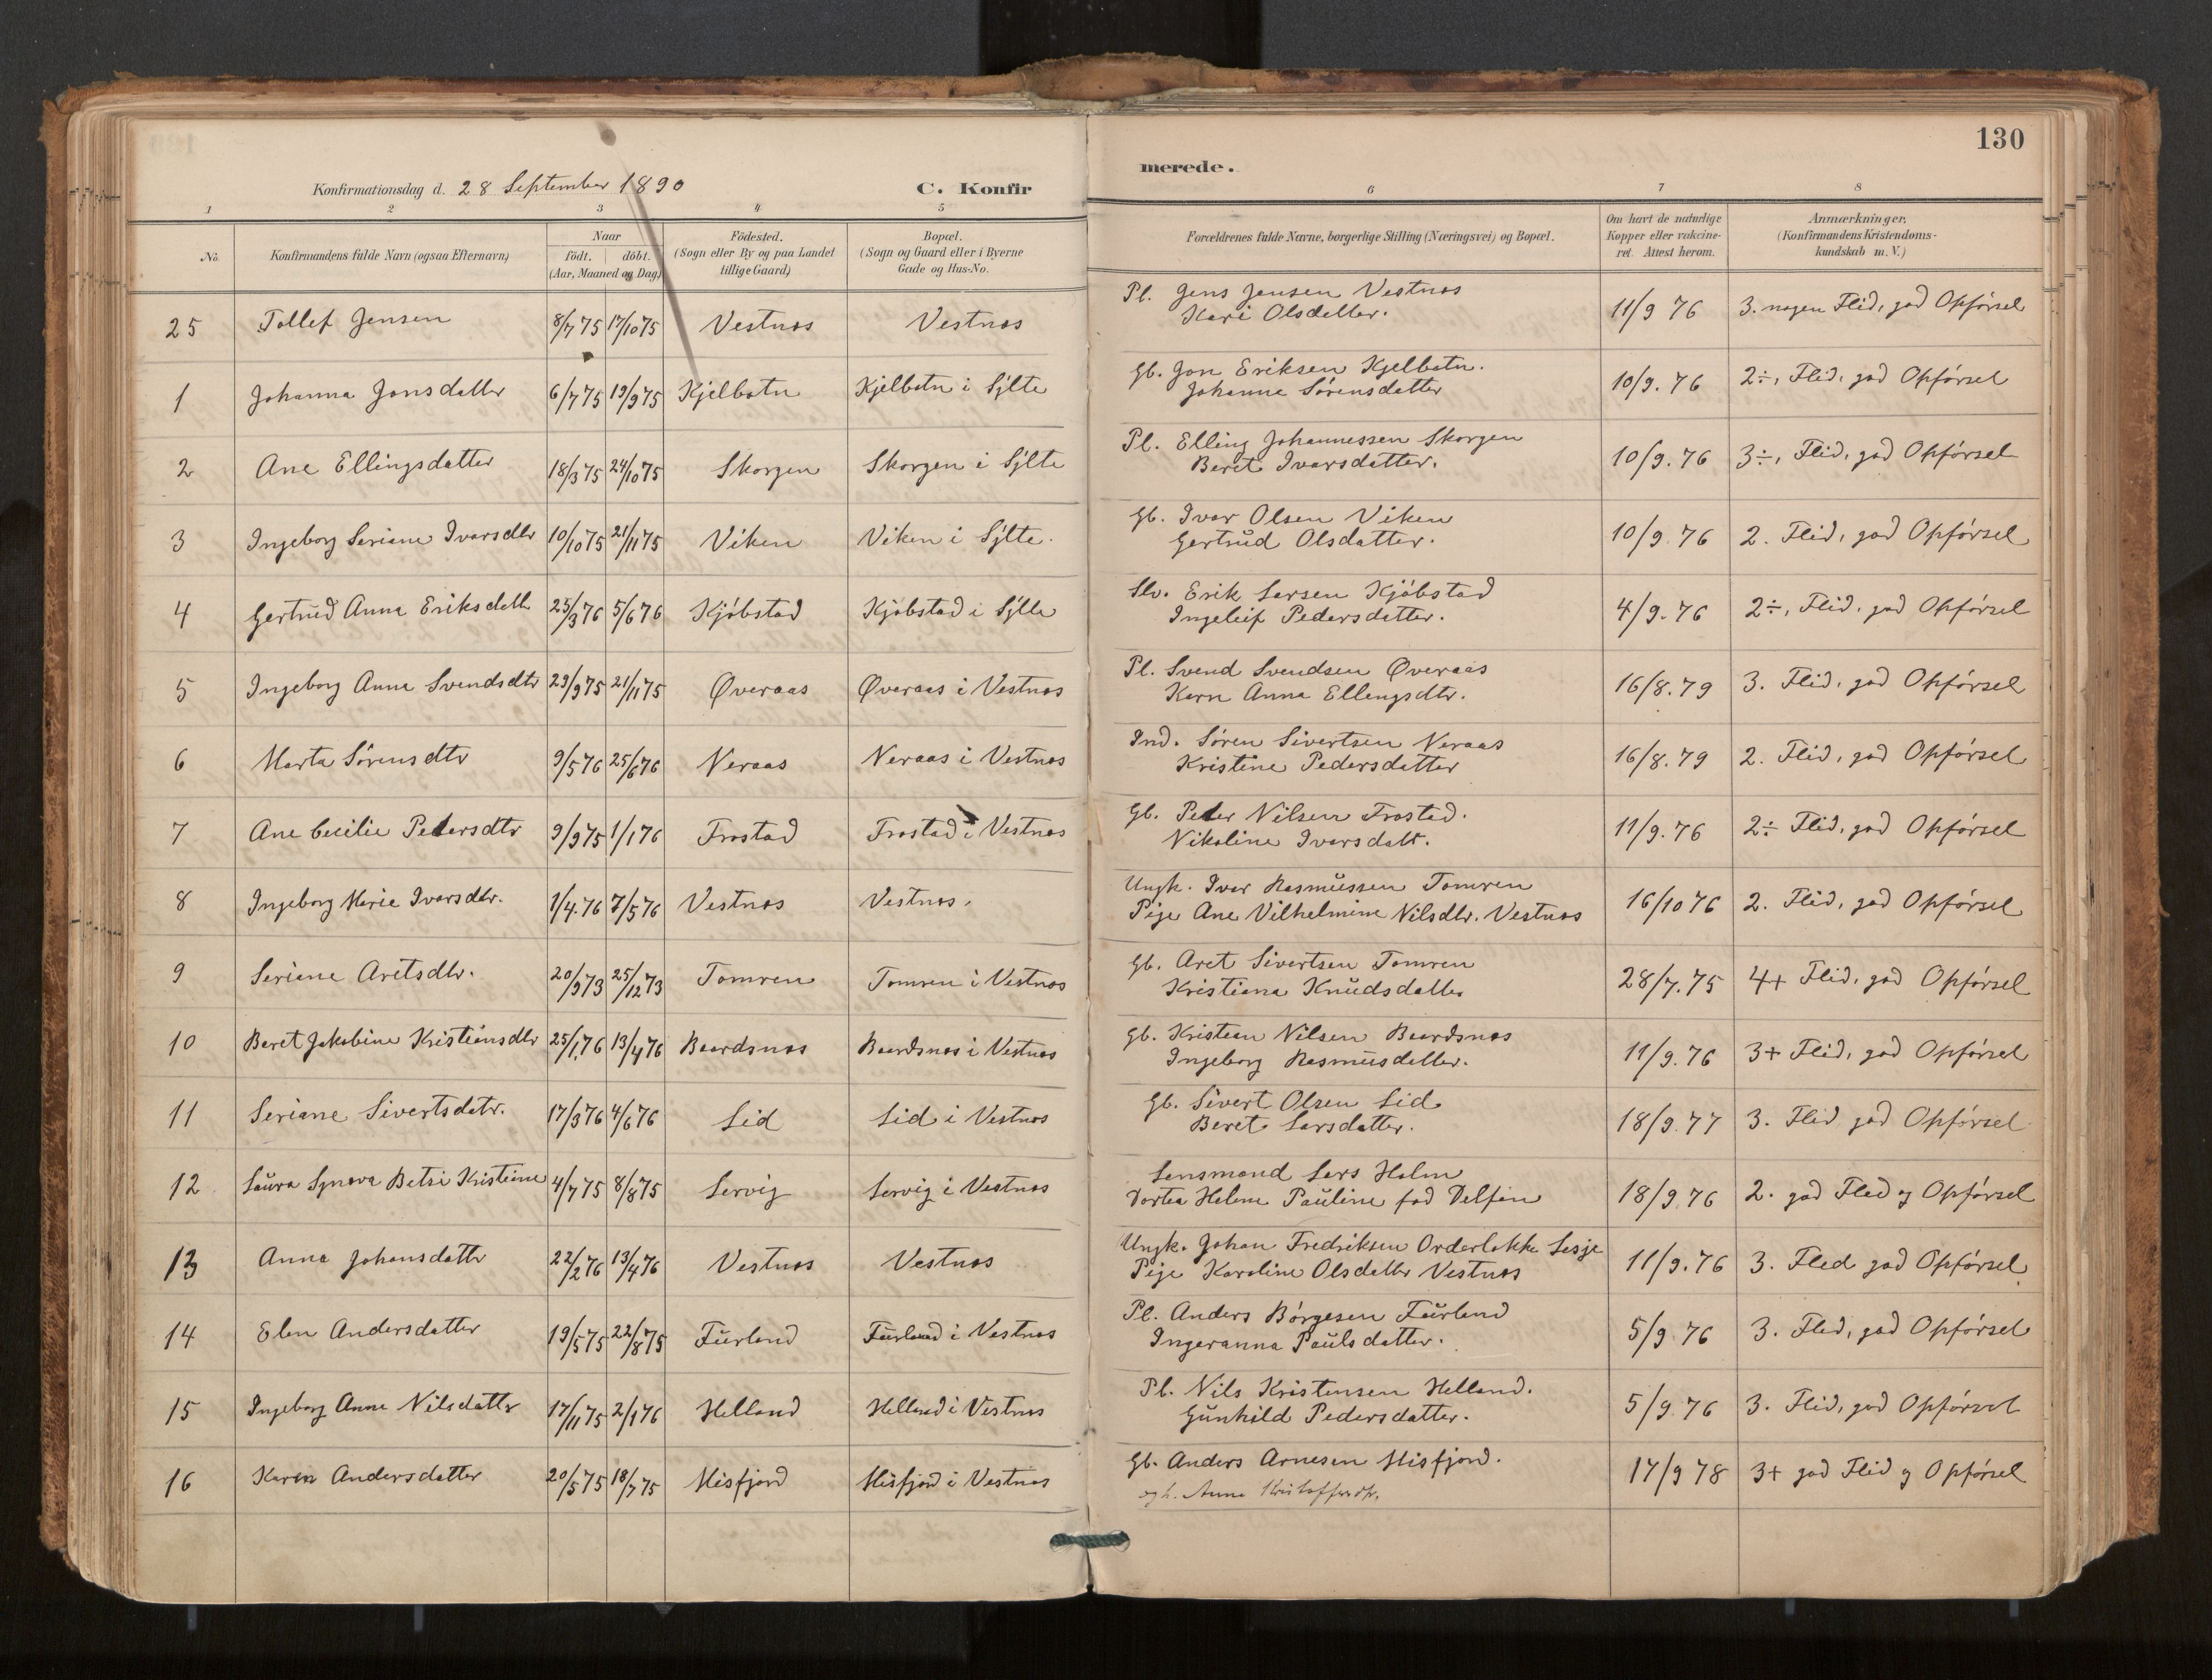 130
Konfirmationsdag d. 28 September 1890 C. Konfir
merede.
1 2 3 4 5 6 7 8
No.
Konfirmandens fulde Navn (ogsaa Efternavn)
Naar
födt. döbt.
(Aar, Maaned og Dag)
Födested.
(Sogn eller By og paa Landet
tillige Gaard)
Bopæl.
(Sogn og Gaard eller i Byerne
Gade og Hus-No.
Forældrenes fulde Navne, borgerlige Stilling (Næringsvei) og Bopæl.
Om havt de naturlige
Kopper eller vakcine-
ret. Attest herom.
Anmærkninger.
(Konfirmandens Kristendoms-
kundskab m. V.)
25 Tollef Jensen 8/7 75 17/10 75 Vestnes Vestnes
Pl. Jens Jensen Vestnes
Kari Olsdatter.
11/9 76 3. nogen Flid, god Opførsel
1 Johanna Jonsdatter 6/7 75 19/9 75 Kjelbotn Kjelbotn i Sylte
Gb. Jon Eriksen Kjelbotn.
Johanne Sørensdatter
10/9. 76 2÷, Flid, god Opførsel
2 Ane Ellingsdatter 18/3 75 24/10 75 Skorgen Skorgen i Sylte
Pl. Elling Johannessen Skorgen
Beret Ivarsdatter.
10/9. 76 3÷, Flid, god Opførsel
3 Ingeborg Seriane Ivarsdtr 10/10 75 21/11 75 Viken Viken i Sylte.
Gb. Ivar Olsen Viken
Gertrud Olsdatter.
10/9. 76 2. Flid, god Opførsel
4 Gertrud Anna Eriksdatt 25/3 76 5/6 76 Kjøbstad Kjøbstad i Sylte
Slv. Erik Larsen Kjøbstad
Ingeleif Pedersdatter.
4/9. 76 2÷, Flid, god Opførsel
5 Ingeborg Anna Svendsdtr 29/9 75 21/11 75 Øveraas Øveraas i Vestnes
Pl. Svend Svendsen Øveraas
Karn Anna Ellengsdtr.
16/8. 79 3. Flid, god Opførsel
6 Marta Sørensdtr 9/5 76 25/6 76 Neraas Neraas i Vestnes
Ind. Søren Sivertsen Neraas
Kristine Pedersdatter
16/8. 79 2. Flid, god Opførsel
7 Ane Cecilie Pedersdtr 9/9 75 1/1 76 Frostad Frostad i Vestnes
Gb. Peder Nilsen Frostad.
Nikoline Ivarsdatt.
11/9. 76 2÷ Flid, god Opførsel
8 Ingeborg Marie Ivarsdtr. 1/4. 76 7/5 76 Vestnes Vestnes.
Ungk. Ivar Rasmussen Tomren
Pige Ane Vilhelmine Nilsdtr. Vestnes
16/10 76 2. Flid, god Opførsel
9 Seriane Aretsdtr. 20/9 73 25/12 73 Tomren Tomren i Vestnes
Gb. Aret Sivertsen Tomren
Kristiana Knudsdatter
28/7. 75 4+ Flid, god Opførsel
10 Beret Jakobine Kristiansdtr 25/1 76 13/4 76 Baardsnes Baardsnes i Vestnes
Gb. Kristian Nilsen Baardsnes
Ingeborg Rasmusdatter.
11/9. 76 3+ Flid, god Opførsel
11 Seriane Sivertsdatr. 17/3 76 4/6 76 Lid Lid i Vestnes
Gb. Sivert Olsen Lid
Beret Larsdatter.
18/9. 77 3. Flid god Opførsel
12 Laura Synøva Betsi Kristine 4/7 75 8/8 75 Lervig Lervig i Vestnes
Lensmand Lars Holm
Dortea Helene Pauline fød Delfin
18/9. 76 2. god Flid og Opførsel
13 Anna Johansdattr 22/2 76 13/4 76 Vestnes Vestnes
Ungk. Johan Fredriksen Orderlokke Lesje
Pige Karoline Olsdattr Vestnes
11/9. 76 3. Flid god Opførsel
14 Elen Andersdatter 19/5 75 22/8 75 Furland Furland i Vestnes
Pl. Anders Børgesen Furland
Ingeranna Paulsdatter.
5/9 76 3. Flid, god Opførsel
15 Ingeborg Anne Nilsdattr 17/11 75 2/1 76 Helland Helland i Vestnes
Pl. Nils Kristensen Helland.
Gunhild Pedersdatter.
5/9. 76 3. Flid, god Opførsel
16 Karen Andersdatter 20/5 75 18/7 75 Misfjord Misfjord i Vestnes
Gb. Anders Arnesen Misfjord.
og h. Anne Kristoffersdtr.
17/9 78 3+ god Flid og Opførsel